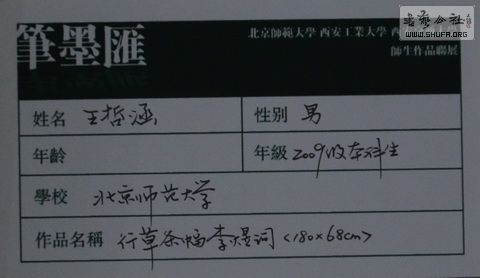 書藝公社
WWW.SHUFA.ORG
筆墨匯
北京師範大學 西安工業大學 西
師生作品聯展
姓名 王哲涵
性别 男
年齡
年級 2009级本科生
學校 北京师范大学
作品名稱 行草条幅李煜词<180×68cm>